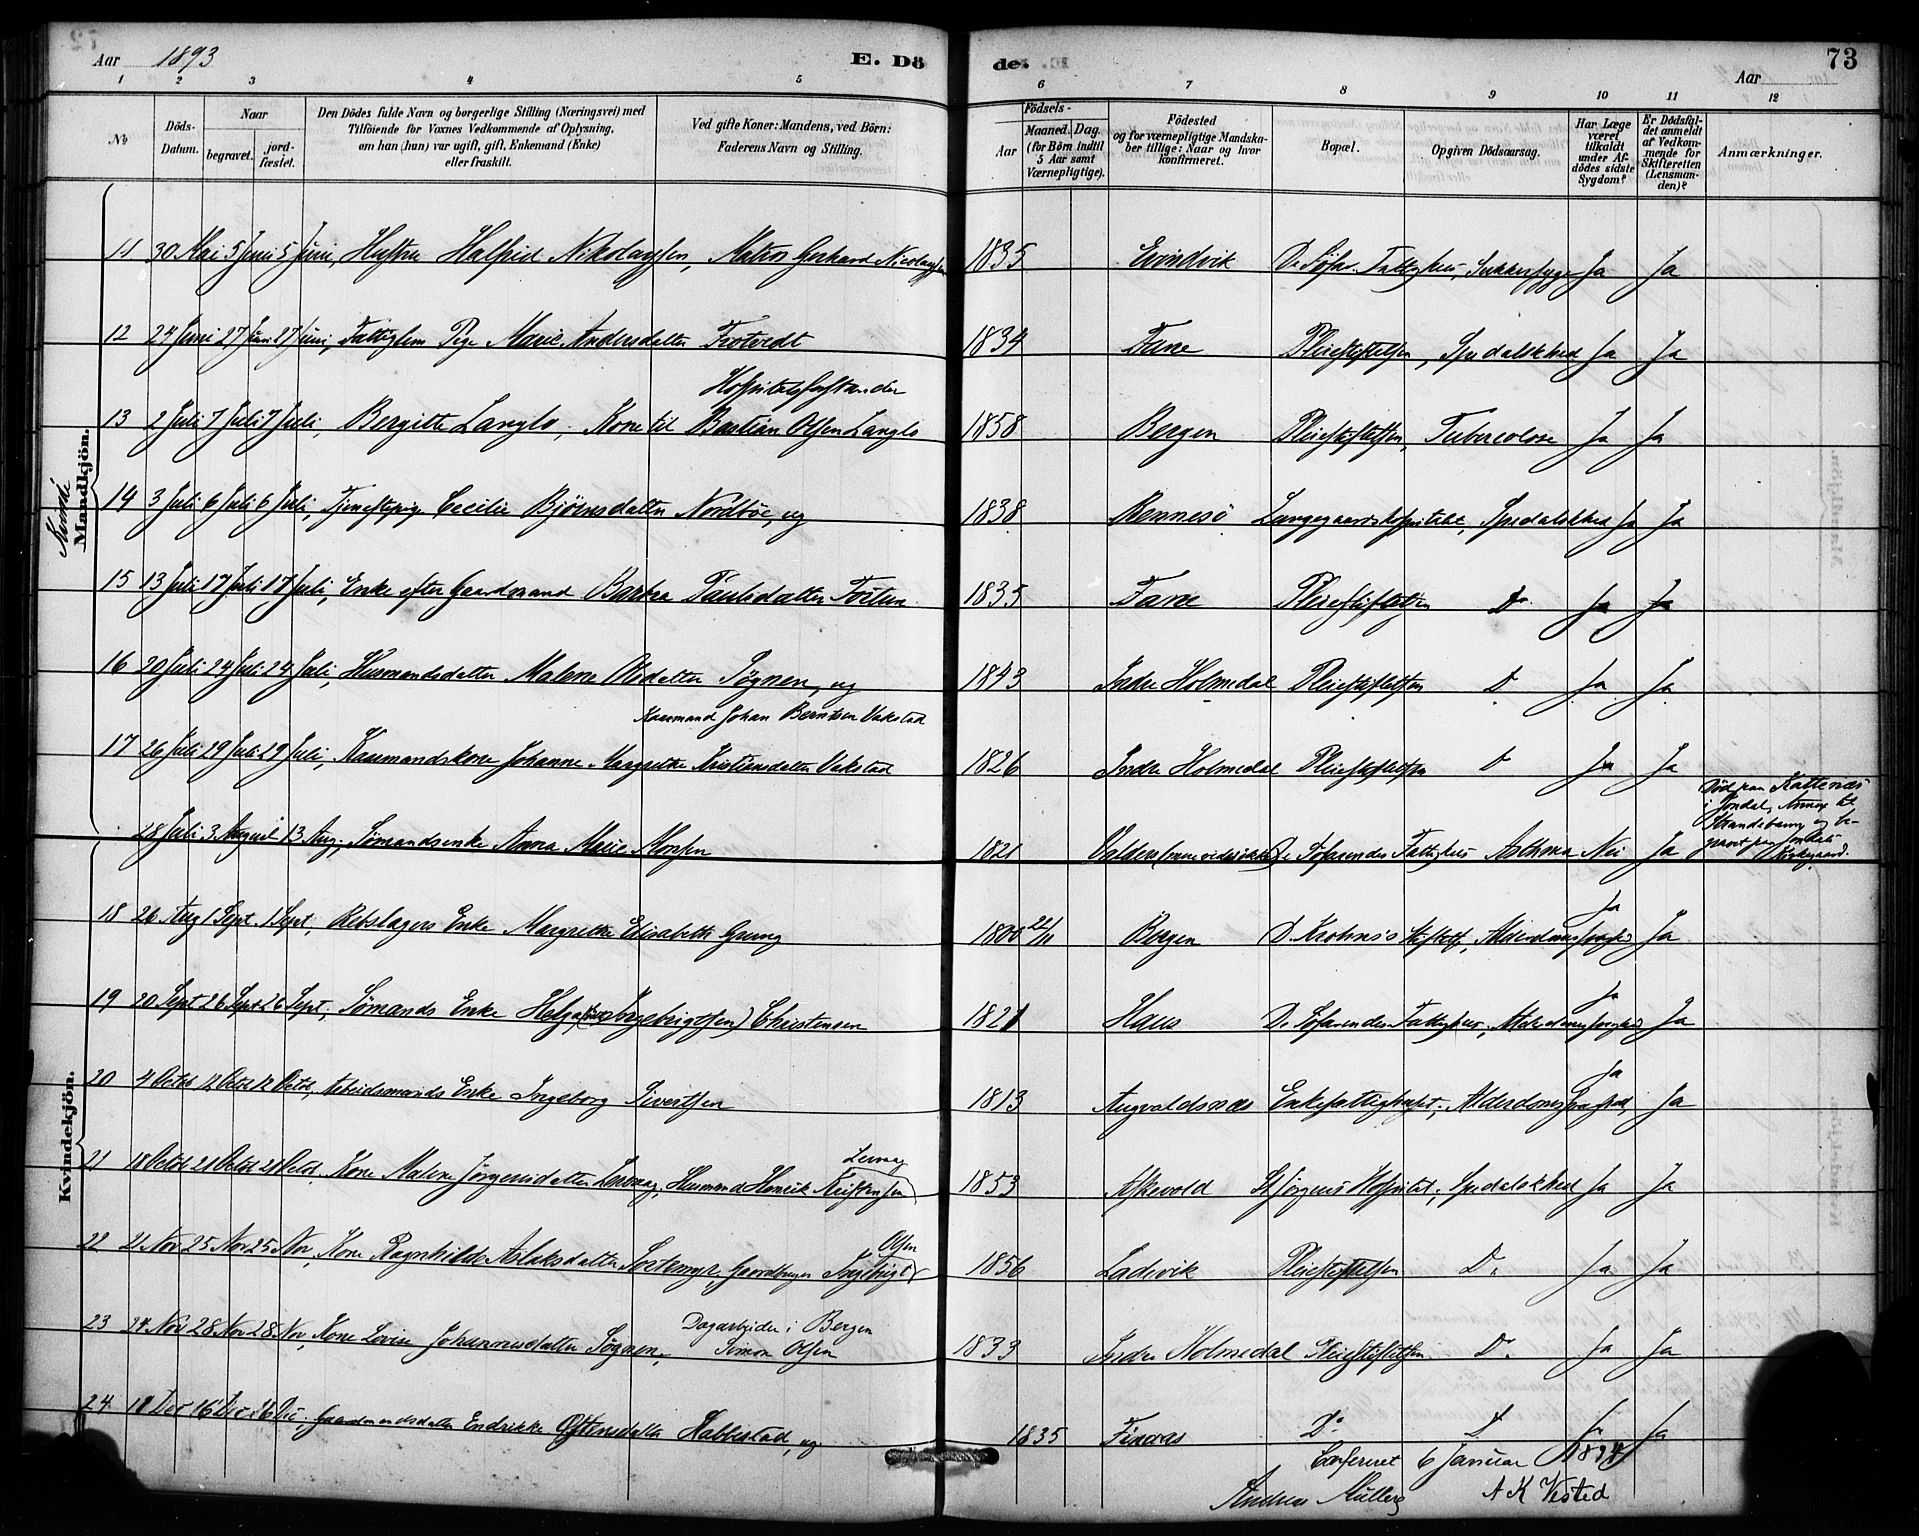 Aar 1893
E. Döde.
Aar
73
1 2 3 4 5 6 7 8 9 10 11 12
No
Döds-Datum.
Naar begravet. jordfæstet.
Den Dödes fulde Navn og borgerlige Stilling (Næringsvei) med Tilföiende for Voxnes Vedkommende af Oplysning, om han (hun) var ugift, gift, Enkemand (Enke) eller fraskilt.
Ved gifte Koner: Mandens, ved Börn: Faderens Navn og Stilling.
Födsels-
Aar Maaned. Dag. (for Börn indtil 5 Aar samt Værnepligtige).
Födested og for værnepligtige Mandskaber tillige: Naar og hvor konfirmeret.
Bopæl.
Opgiven Dödsaarsag.
Har Læge været tilkaldt under Afdödes sidste Sygdom?
Er Dödsfaldet anmeldt af Vedkommende for Skifteretten (Lensmanden)?
Anmærkninger.
Kvinde
Mandkjön.
11 30 Mai 5 Juni 5 Juni, Hustru Halfrid Nikolaysen, Matros Gerhard Nicolaysen 1835 Evindvik D. Søfar. Fattighus, Sukkersyge Ja Ja
12 24 Juni 27 Juni 27 Juni, Fattiglem Pige Marie Andersdatter Frotvedt 1834 Fane Pleiestiftelsen, Spedalskhed Ja Ja
Hospitalsforstander
13 2 Juli 7 Juli 7 Juli, Bergitte Langlo, Kone til Bastian Olsen Langlo 1858 Bergen Pleiestiftelsen, Tuberculose Ja Ja
14 3 Juli 6 Juli 6 Juli, Tjenestepige Cecilie Bjørnsdatter Nordbøe, ug 1838 Rennesö Lungegaardshospitalet, Spedalskhed Ja Ja
15 13 Juli 17 Juli 17 Juli, Enke efter Gaardmand Barbra Paulsdatter 1835 Fane Pleiestiftelsen Do. Ja Ja
16 20 Juli 24 Juli 24 Juli, Husmandsdatter Malene Olsdatter Søgnen, ug 1843 Indre Holmedal Pleiestiftelsen D Ja Ja
Husmand Johan Berntsen Vakstad
17 26 Juli 29 Juli 29 Juli, Husmandskone Johanne Margrethe Kristiansdatter Vakstad 1826 Indre Holmedal Pleiestiftelsen D Ja Ja
28 Juli 3 August 13 Aug, Sømandsenke Anna Marie Monsen 1821 Valders De Søfarendes Fattighus Asthma Nei Ja
Død paa Kattenæs
i Jondal, Annex til
Strandebarm og be-
gravet paa Jondals
Kirkegaard.
Kvindekjön.
18 26 Aug 1 Sept. 1 Sept, Rebslagers Enke Margrethe Elisabeth Grung 1800 22/11 Bergen D. Krohns Stiftelse, Alderdomssvaghed Ja Ja
19 20 Sept 26 Sept 26 Sept, Sømands Enke Helga Ingebrigtsen) Christensen 1821 Haus De Søfarendes Fattighus, Alderdomssvaghed Ja Ja
20 4 Octob 12 Octob 12 Octob, Arbeidsmands Enke Ingeborg Sivertsen 1813 Augvaldsnæs Enkefattighuset, Alderdomssvaghed, Ja Ja
21 18 Octob 21 Octob 21 Octob, Kone Malene Jørgensdatter Lervaag, Husmand Henrik Kristensen Lervaag 1853 Askevold St Jørgens Hospital, Spedalskhed Ja Ja
22 21 Nov 25 Nov 25 Nov, Kone Ragnhilde Aslaksdatter Sortemyr, Gaardbruger Ingebrigt Olsen 1856 Ladevik Pleiestiftelsen Do. Ja Ja
Dagarbeider i Bergen
23 24 Nov 28 Nov 28 Nov, Kone Lovise Johannesdatter Søgnen, Simon Olsen 1833 Indre Holmedal Pleiestiftelsen Do Ja Ja
24 11 Dec 16 Dec 16 Dec, Gaardmandsdatter Endrikke Østensdatter Habbestad, ug 1835 Finnaas Do D Ja Ja
Confereret 6 Januar 1894
Andreas Müller A K Vested